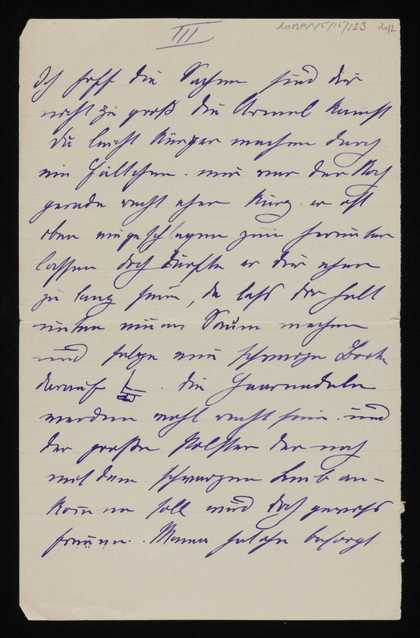 III
Ich hoff die Sachen sind dir
nicht zu groß die Ärmel kannst
du leicht kürzer machen durch
ein Fältchen. mir war der Rock
gerade recht eher kurz. er ist
oben eingeschlagen zum herunter
lassen doch dürfte er dir eher
zu lang sein, da lass dir halt
unten einen Saum machen
und
schwarze Borte
darauf. die Haarnadeln
werden wohl recht sein. und
der große Polster der noch
mit dem schwarzen
an-
kommen soll wird doch gewiss
freuen. Mama
besorgt